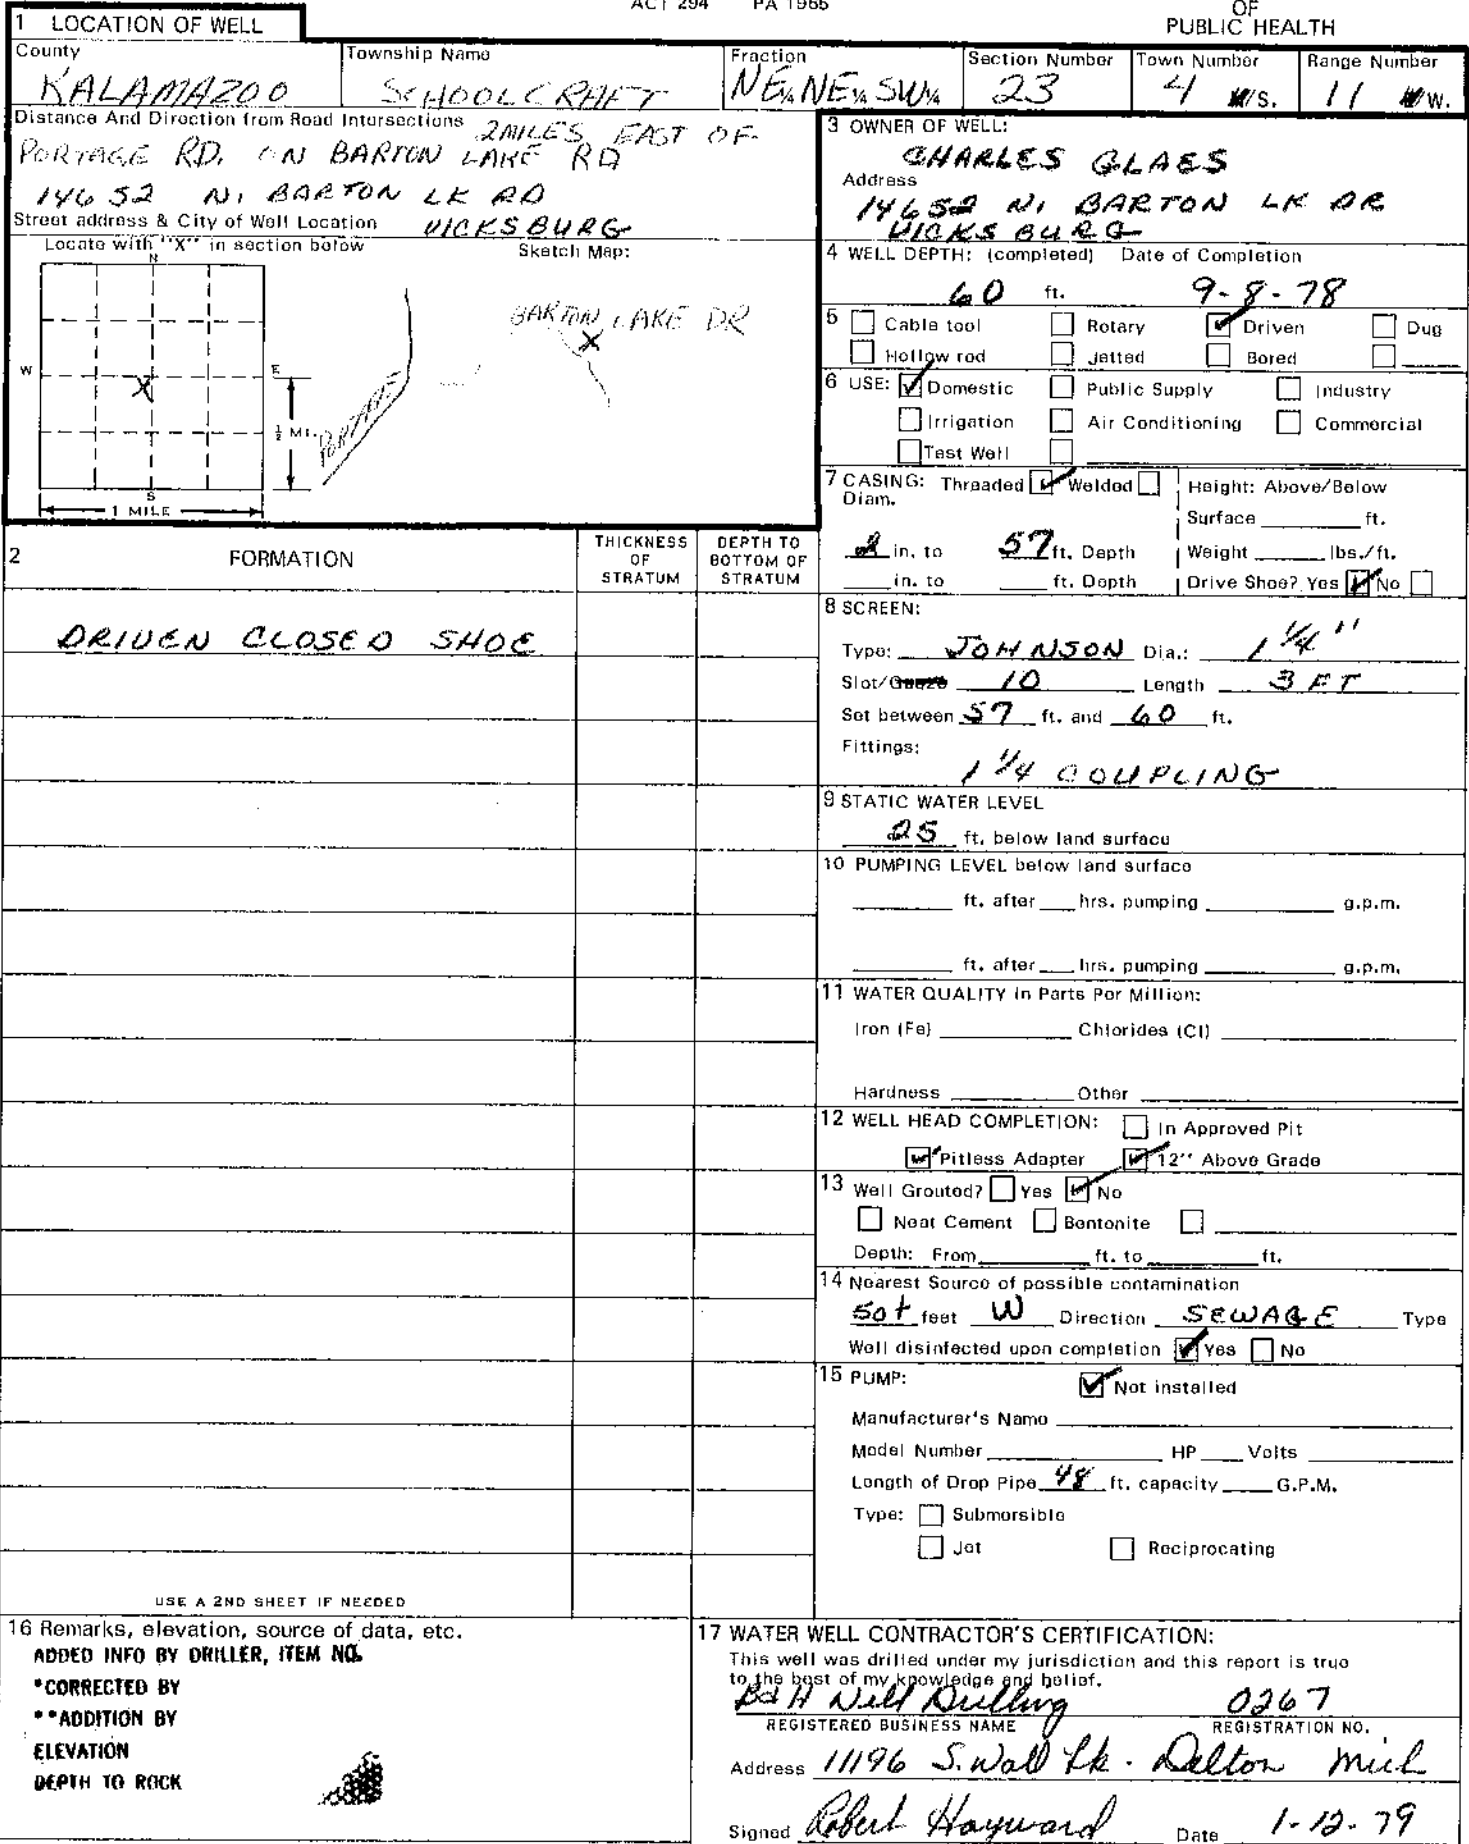 ACT 294 PA 1965
OF
PUBLIC HEALTH
1 LOCATION OF WELL
County
KALAMAZOO
Township Name
SCHOOLCRAFT
Fraction
NE¼ NE¼ SW¼
Section Number
23
Town Number
4 /S.
Range Number
11 W.
Distance And Direction from Road Intersections 2 MILES EAST OF
PORTAGE RD. ON BARTON LAKE RD
14652 N. BARTON LK RD
Street address & City of Well Location VICKSBURG
Locate with "X" in section below
Sketch Map:
N
W
E
S
X
½ MI.
1 MILE
PORTAGE
BARTON LAKE DR
X
3 OWNER OF WELL:
CHARLES GLAES
Address
14652 N. BARTON LK DR
VICKSBURG
4 WELL DEPTH: (completed) Date of Completion
60 ft. 9-8-78
5 Cable tool Rotary Driven Dug
Hollow rod Jetted Bored
6 USE: Domestic Public Supply Industry
Irrigation Air Conditioning Commercial
Test Well
7 CASING: Threaded Welded
Diam.
2 in. to 57 ft. Depth
in. to ft. Depth
Height: Above/Below
Surface ft.
Weight lbs./ft.
Drive Shoe? Yes No
2 FORMATION
THICKNESS OF STRATUM
DEPTH TO BOTTOM OF STRATUM
DRIVEN CLOSED SHOE
8 SCREEN:
Type: JOHNSON Dia.: 1 1/4"
Slot/Gauze 10 Length 3 FT
Set between 57 ft. and 60 ft.
Fittings:
1 1/4 COUPLING
9 STATIC WATER LEVEL
25 ft. below land surface
10 PUMPING LEVEL below land surface
ft. after hrs. pumping g.p.m.
ft. after hrs. pumping g.p.m.
11 WATER QUALITY in Parts Per Million:
Iron (Fe) Chlorides (Cl)
Hardness Other
12 WELL HEAD COMPLETION: In Approved Pit
Pitless Adapter 12" Above Grade
13 Well Grouted? Yes No
Neat Cement Bentonite
Depth: From ft. to ft.
14 Nearest Source of possible contamination
50+ feet W Direction SEWAGE Type
Well disinfected upon completion Yes No
15 PUMP: Not installed
Manufacturer's Name
Model Number HP Volts
Length of Drop Pipe 48 ft. capacity G.P.M.
Type: Submersible
Jet Reciprocating
USE A 2ND SHEET IF NEEDED
16 Remarks, elevation, source of data, etc.
ADDED INFO BY DRILLER, ITEM NO.
*CORRECTED BY
**ADDITION BY
ELEVATION
DEPTH TO ROCK
17 WATER WELL CONTRACTOR'S CERTIFICATION:
This well was drilled under my jurisdiction and this report is true
to the best of my knowledge and belief.
B & H Well Drilling 0267
REGISTERED BUSINESS NAME REGISTRATION NO.
Address 11196 S. Wall Lk. Delton Mich
Signed Robert Hayward Date 1-12-79